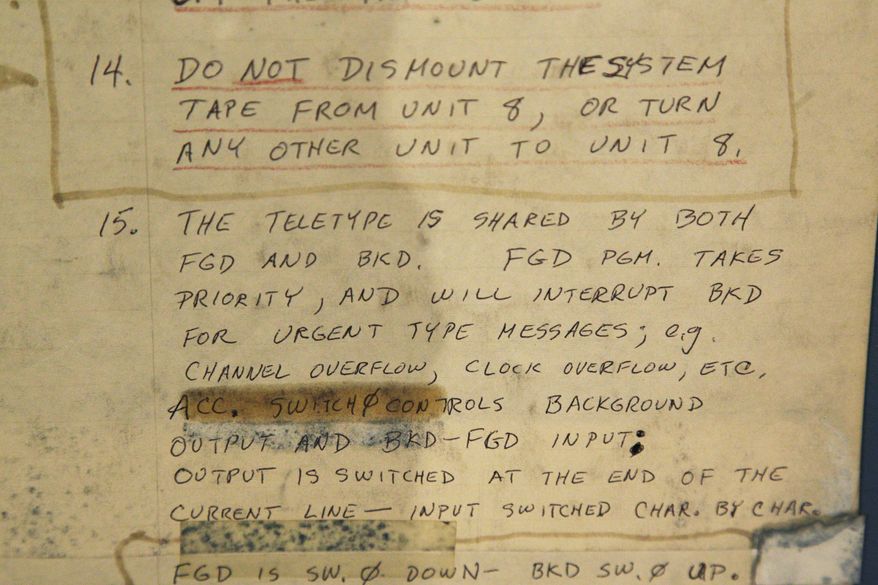 14. DO NOT DISMOUNT THE SYSTEM
TAPE FROM UNIT 8, OR TURN
ANY OTHER UNIT TO UNIT 8.
15. THE TELETYPE IS SHARED BY BOTH
FGD AND BKD. FGD PGM. TAKES
PRIORITY, AND WILL INTERRUPT BKD
FOR URGENT TYPE MESSAGES; e.g.
CHANNEL OVERFLOW, CLOCK OVERFLOW, ETC.
ACC. SWITCH Ø CONTROLS BACKGROUND
OUTPUT AND BKD-FGD INPUT;
OUTPUT IS SWITCHED AT THE END OF THE
CURRENT LINE — INPUT SWITCHED CHAR. BY CHAR.
FGD IS SW. Ø DOWN- BKD SW. Ø UP.